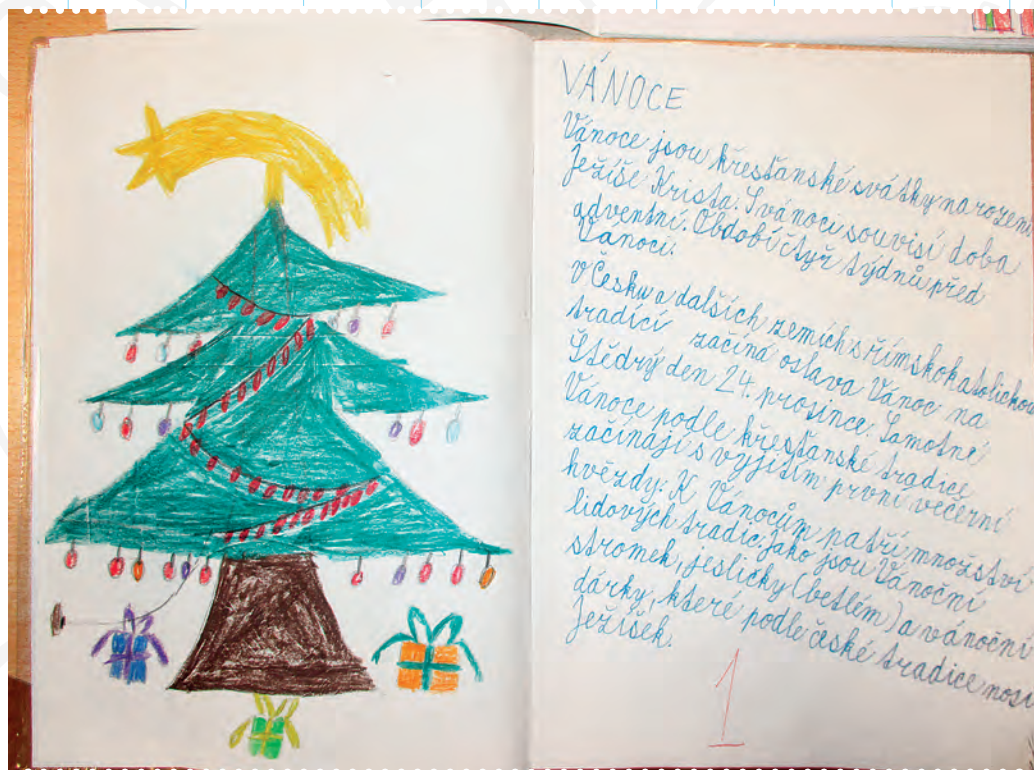 VÁNOCE
Vánoce jsou křesťanské svátky narození
Ježíše Krista. S vánoci souvisí doba
adventní. Období čtyř týdnů před
Vánoci.
V Česku a dalších zemích s římskokatolickou
tradicí začíná oslava Vánoc na
Štědrý den 24. prosince. Samotné
Vánoce podle křesťanské tradice
začínají s vyjitím první večerní
hvězdy. K Vánocům patří množství
lidových tradic jako jsou Vánoční
stromek, jesličky (betlém) a vánoční
dárky, které podle české tradice nosí
Ježíšek.
1